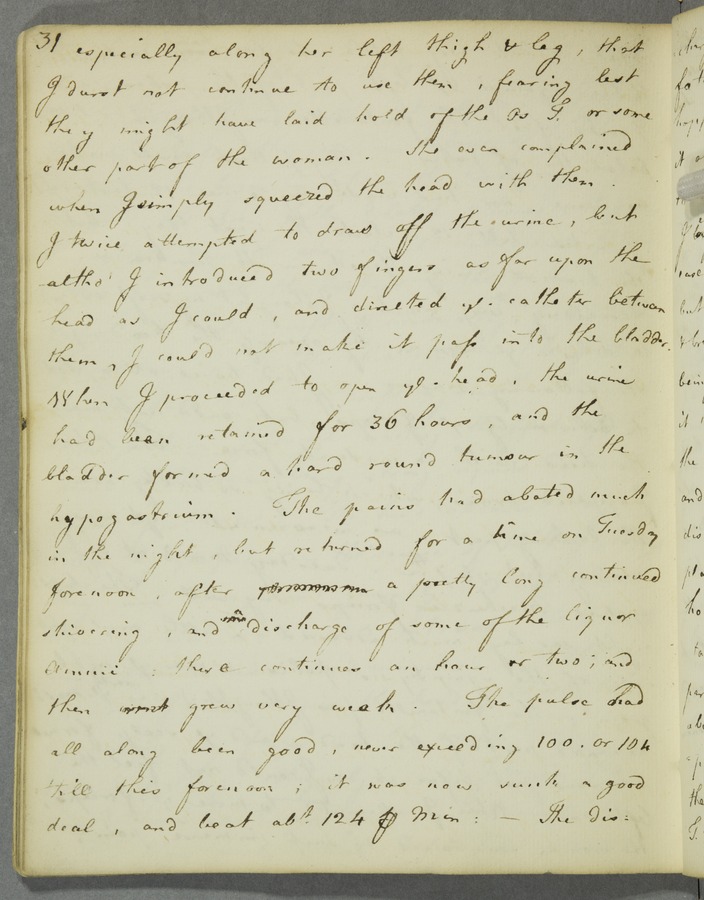 31 especially along her left thigh & leg, that
I durst not continue to use them, fearing lest
they might have laid hold of the Os T. or some
other part of the woman. She even complained
when I simply squeezed the head with them.
I twice attempted to draw off the urine, but
altho' I introduced two fingers as far upon the
head as I could, and directed ye. catheter between
them, I could not make it pass into the bladder.
When I proceeded to open ye. head, the urine
had been retained for 36 hours, and the
bladder formed a hard round tumour in the
hypogastrium. The pains had abated much
in the night, but returned for a time on Tuesday
forenoon, after a pretty long continued
shivering, and discharge of some of the liquor
Amnii: these continues an hour or two; and
then grew very weak. The pulse had
all along been good, never exceeding 100. or 104
'till this forenoon; it was now sunk a good
deal, and beat abt. 124 ⅌ Min: — The dis: